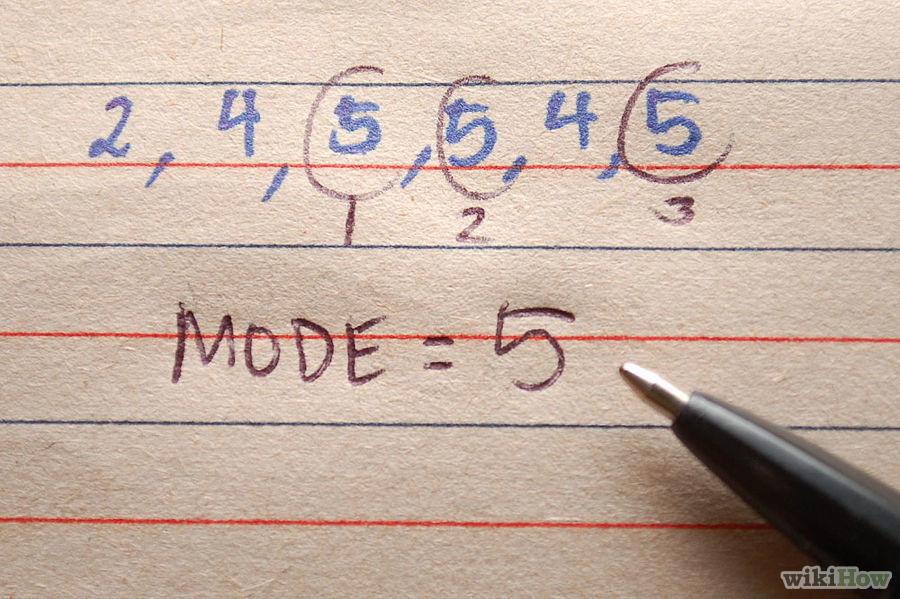 2, 4, 5, 5, 4, 5
1 2 3
MODE = 5
wikiHow